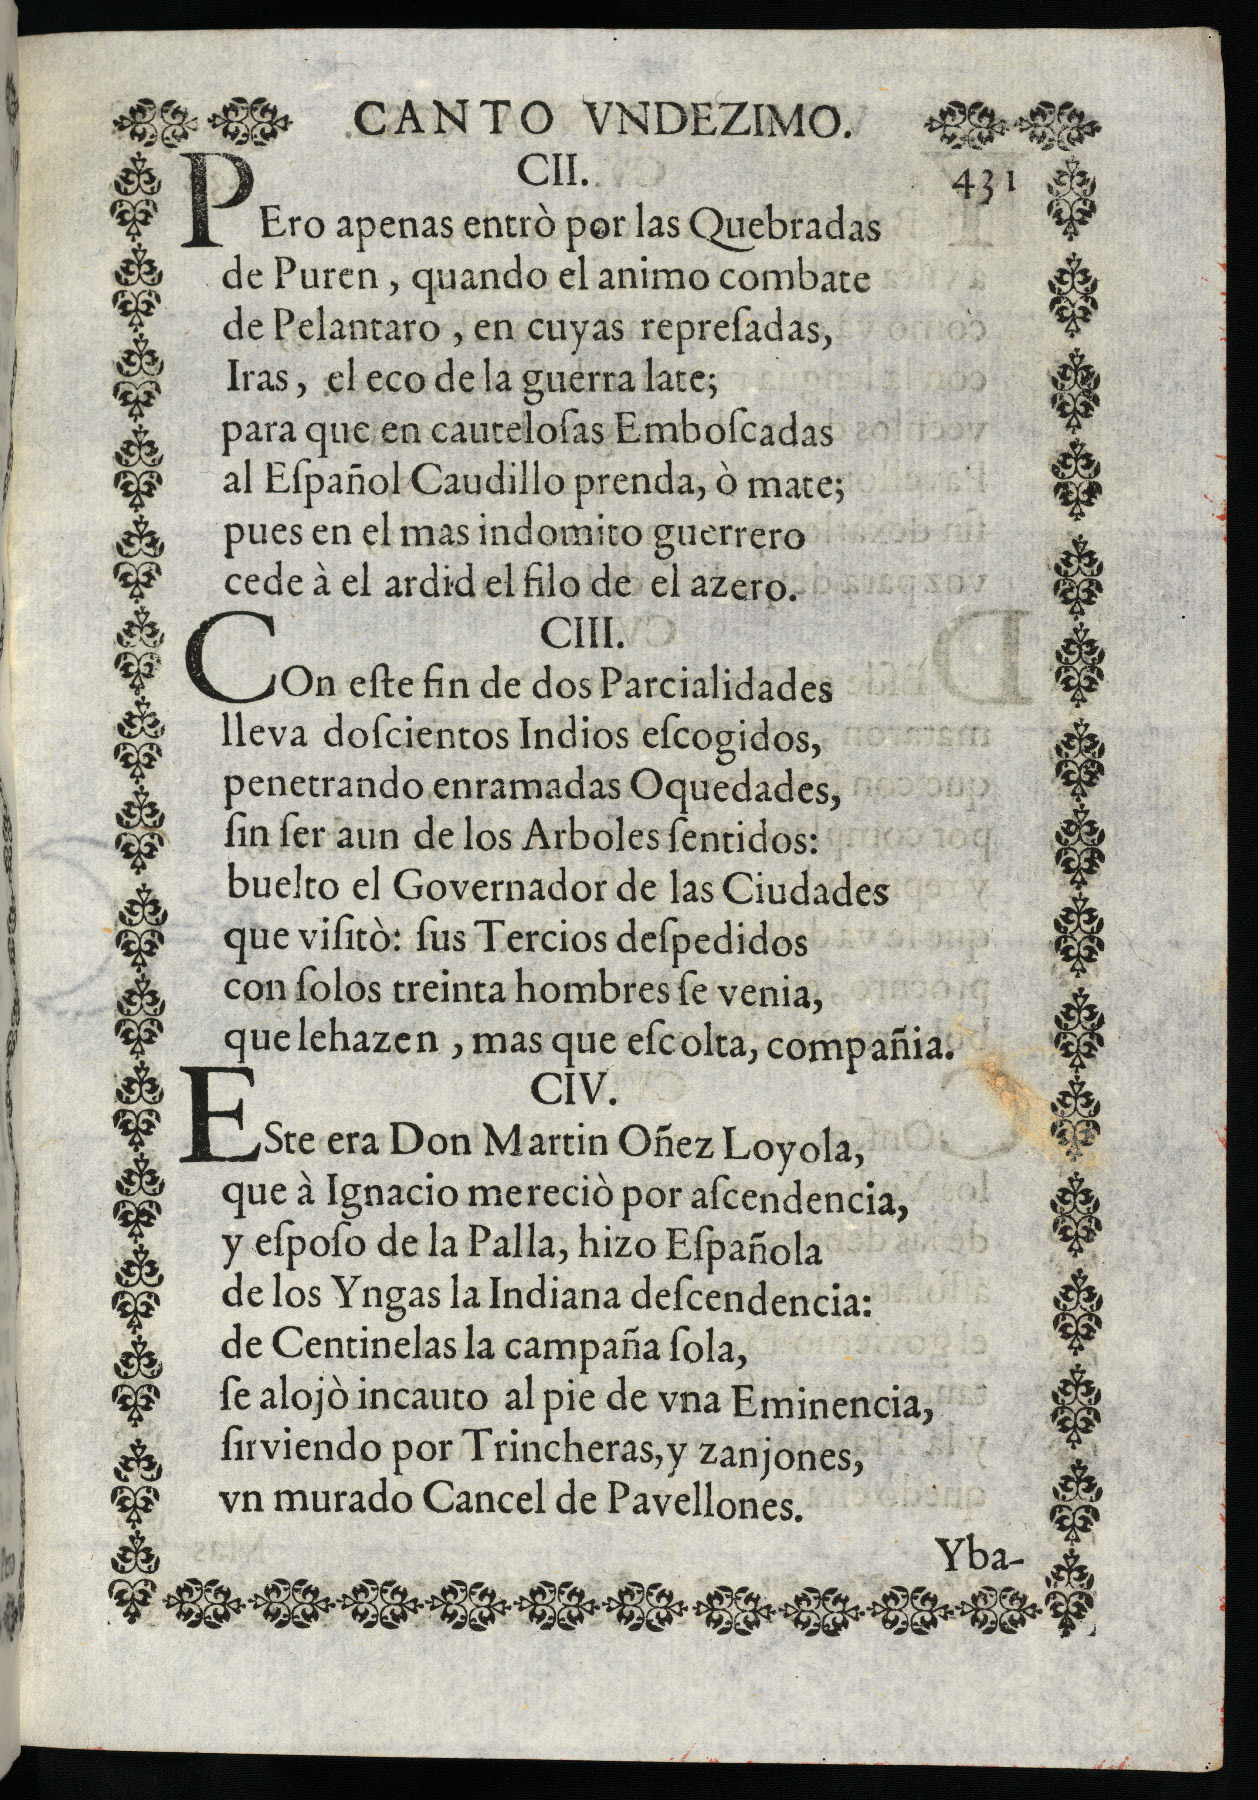 CANTO VNDEZIMO.
CII.
431
PEro apenas entrò por las Quebradas
de Puren, quando el animo combate
de Pelantaro, en cuyas repreſadas,
Iras, el eco de la guerra late;
para que en cauteloſas Emboſcadas
al Eſpañol Caudillo prenda, ò mate;
pues en el mas indomito guerrero
cede à el ardid el filo de el azero.
CIII.
COn eſte fin de dos Parcialidades
lleva doſcientos Indios eſcogidos,
penetrando enramadas Oquedades,
ſin ſer aun de los Arboles ſentidos:
buelto el Governador de las Ciudades
que viſitò: ſus Tercios deſpedidos
con ſolos treinta hombres ſe venia,
que lehazen, mas que eſcolta, compañia.
CIV.
ESte era Don Martin Oñez Loyola,
que à Ignacio mereciò por aſcendencia,
y eſpoſo de la Palla, hizo Eſpañola
de los Yngas la Indiana deſcendencia:
de Centinelas la campaña ſola,
ſe alojò incauto al pie de vna Eminencia,
ſirviendo por Trincheras, y zanjones,
vn murado Cancel de Pavellones.
Yba-